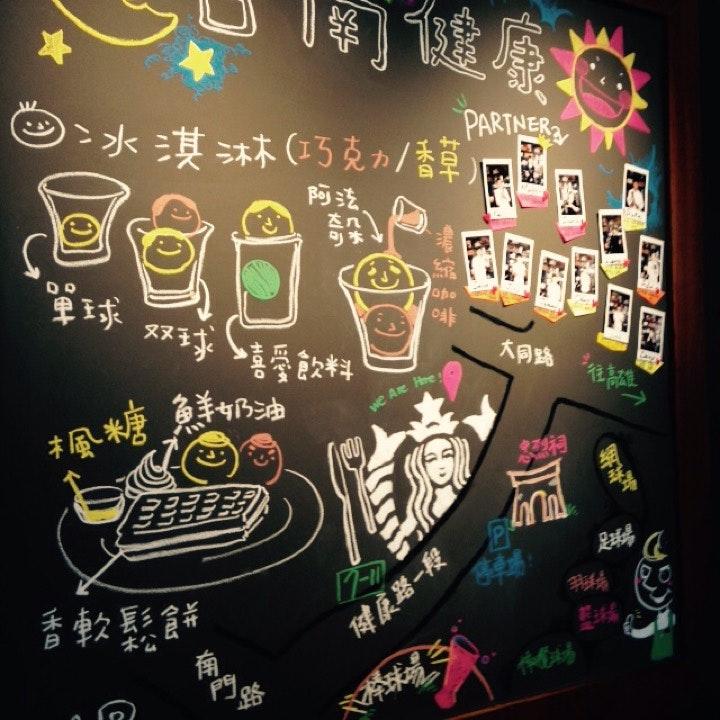 台南健康
冰淇淋(巧克力/香草)
PARTNER
單球
双球
喜愛飲料
阿法
奇朵
濃縮咖啡
楓糖
鮮奶油
香軟鬆餅
We Are Here!
7-11
健康路一段
大同路
往高雄
忠烈祠
P
停車場
網球場
足球場
羽球場
籃球場
棒球場
南門路
P